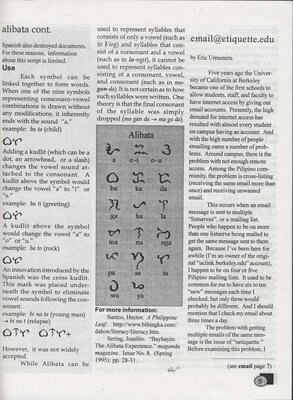 alibata cont.
Spanish also destroyed documents.
For these reasons, information
about this script is limited.
Use
Each symbol can be
linked together to form words.
When one of the nine symbols
representing consonant-vowel
combinations is drawn without
any modifications, it inherently
ends with the sound "a."
example: ba ta (child)
ᜊᜆ
Adding a kudlit (which can be a
dot, an arrowhead, or a slash)
changes the vowel sound at-
tached to the consonant. A
kudlit above the symbol would
change the vowel "a" to "i" or
"e."
example: ba ti (greeting)
A kudlit above the symbol
would change the vowel "a" to
"o" or "u."
example: ba to (rock)
An innovation introduced by the
Spanish was the cross kudlit.
This mark was placed under-
neath the symbol to eliminate
vowel sounds following the con-
sonant.
example: bi na ta (young man)
→ bi na t (relapse)
However, it was not widely
accepted.
While Alibata can be
used to represent syllables that
consists of only a vowel (such as
in I-log) and syllables that con-
sist of a consonant and a vowel
(such as in la-ngit), it cannot be
used to represent syllables con-
sisting of a consonant, vowel,
and consonant (such as in ma-
gan-da). It is not certain as to how
such syllables were written. One
theory is that the final consonant
of the syllable was simply
dropped (ma gan da → ma ga da)
Alibata
a e-i o-u
ba ka da
ga ha la
ma na nga
pa sa ta
wa ya
For more information:
Santos, Hector. A Philippine
Leaf. http://www.bibingka.com/
dahon/literacy/literacy.htm.
Sering, Joselito. "Baybayin:
The Alibata Experience." maganda
magazine. Issue No. 8. (Spring
1995): pp. 28-31.
email@etiquette.edu
by Eric Urmeneta
Five years ago the Univer-
sity of California at Berkeley
became one of the first schools to
allow students, staff, and faculty to
have internet access by giving out
email accounts. Presently, the high
demand for internet access has
resulted with almost every student
on campus having an account. And
with the high number of people
emailing came a number of prob-
lems. Around campus, there is the
problem with not enough remote
access. Among the Filipino com-
munity, the problem is cross-listing
(receiving the same email more than
once) and receiving unwanted
email.
This occurs when an email
message is sent to multiple
"listservers", or a mailing list.
People who happen to be on more
than one listserve being mailed to
get the same message sent to them
again. Because I've been here for
awhile (I'm an owner of the origi-
nal "uclink.berkeley.edu" account),
I happen to be on four or five
Pilipino mailing lists. It used to be
common for me to have six to ten
"new" messages each time I
checked, but only three would
probably be different. And I should
mention that I check my email about
three times a day.
The problem with getting
multiple emails of the same mes-
sage is the issue of "netiquette."
Before examining this problem, I
(see email page 7)